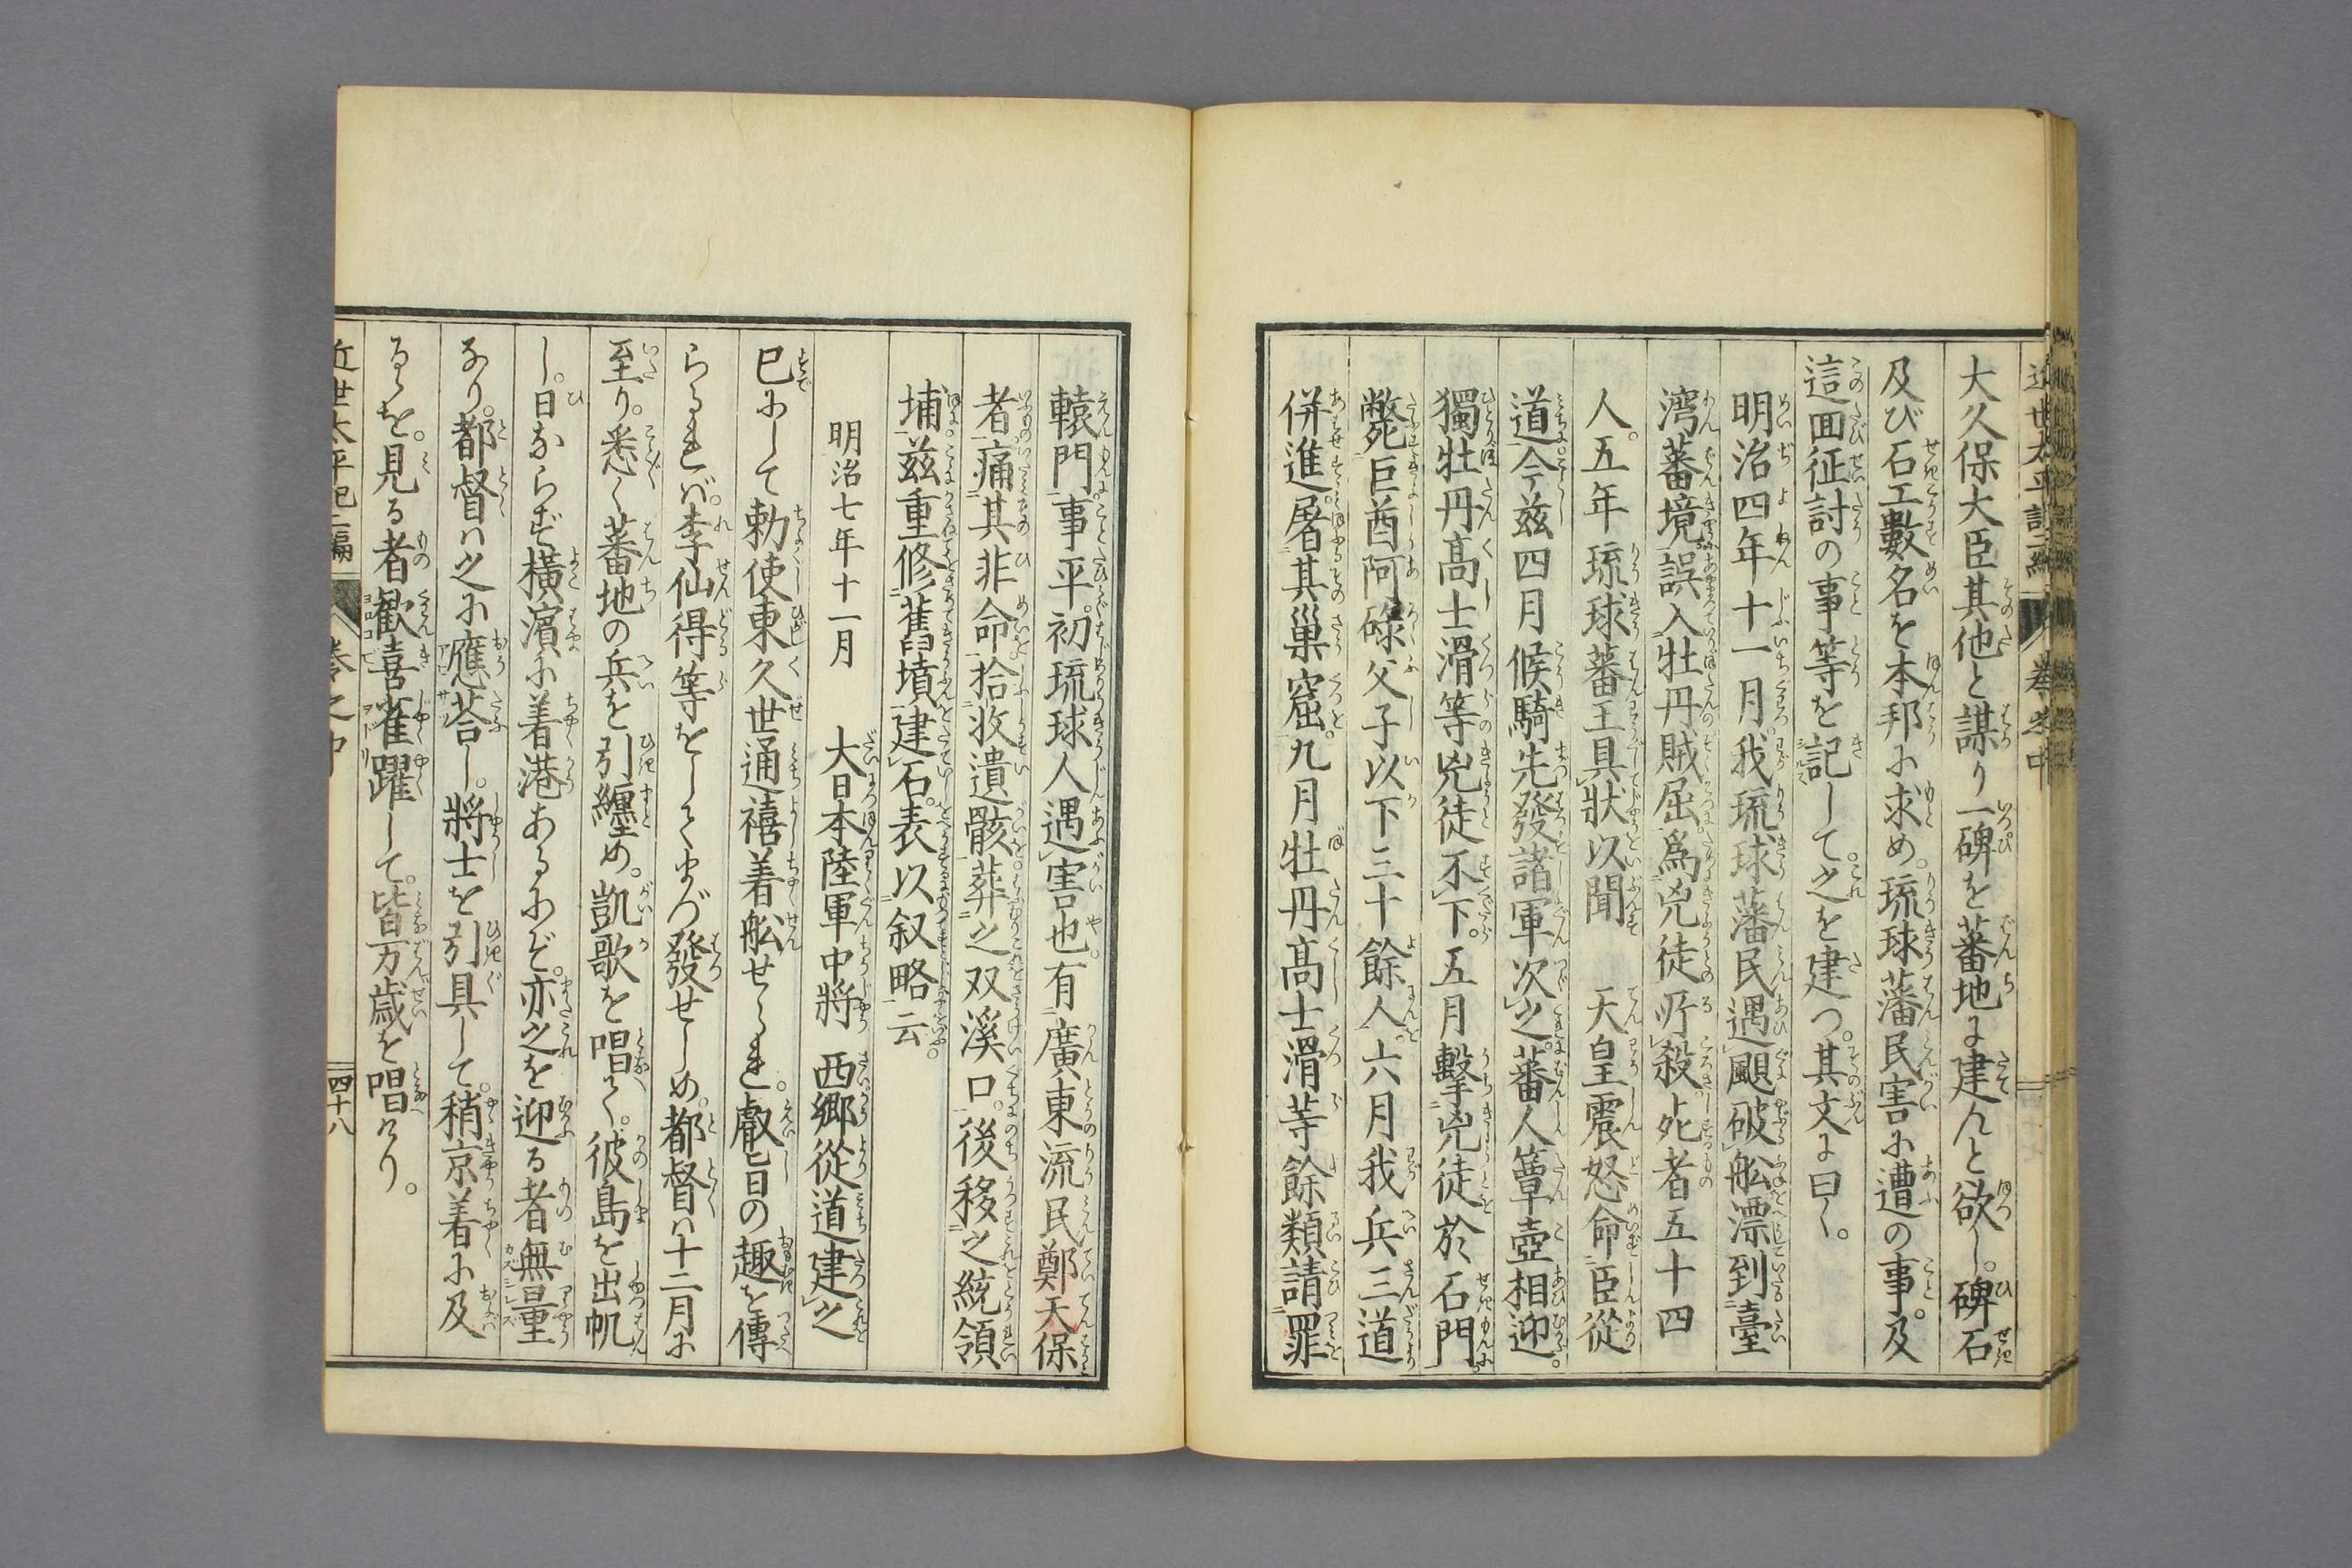 大久保大臣其他と謀り一碑を蕃地に建んと欲し。碑石
及び石工數名を本邦に求め。琉球藩民害に遭の事。及
這回征討の事等を記して。之を建つ。其文に曰く。
明治四年十一月。我琉球藩民遇颶破舩漂到臺
湾蕃境誤入牡丹賊屈爲兇徒所殺。死者五十四
人。五年琉球蕃王具狀以聞　天皇震怒命臣從
道今茲四月候騎先發諸軍次之。蕃人簞壺相迎。
獨牡丹高士滑等兇徒不下。五月擊兇徒於石門。
斃巨酋阿碌父子以下三十餘人。六月我兵三道
併進。屠其巢窟。九月牡丹高士滑等餘類請罪
轅門。事平。初琉球人遇害也。有廣東流民鄭天保
者痛其非命。拾收遺骸葬之双溪口。後移之統領
埔。茲重修舊墳建石。表以叙略云。
明治七年十一月　大日本陸軍中將　西郷從道建之
已にして勅使東久世通禧着舩せられ。叡旨の趣を傳
らるれバ。李仙得等をしてまづ發せしめ。都督ハ十二月に
至り。悉く蕃地の兵を引纏め。凱歌を唱へて。彼島を出帆
し。日ならず横濱に着港あるにぞ。亦之を迎る者無量
なり。都督ハ之に應荅し。將士を引具して。稍京着に及
るゝを。見る者歡喜雀躍して。皆万歳を唱へけり。
近世太平記二編　卷之中　四十八